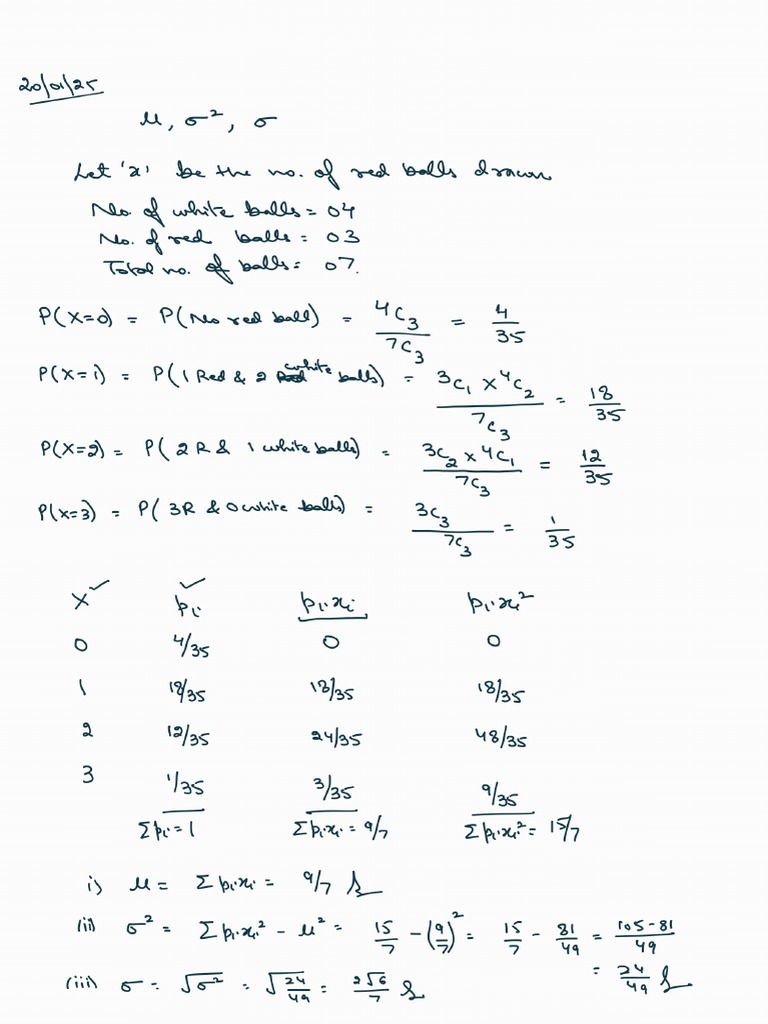 20/01/25
μ, σ², σ
Let 'x' be the no. of red balls drawn
No. of white balls = 04
No. of red balls = 03
Total no. of balls = 07.
P(X=0) = P(No red ball) = 4C3/7C3 = 4/35
P(X=1) = P(1 Red & 2 white balls) = 3C1 × 4C2/7C3 = 18/35
P(X=2) = P(2R & 1 white balls) = 3C2 × 4C1/7C3 = 12/35
P(X=3) = P(3R & 0 white balls) = 3C3/7C3 = 1/35
X pi pi.xi pi.xi²
0 4/35 0 0
1 18/35 18/35 18/35
2 12/35 24/35 48/35
3 1/35 3/35 9/35
Σpi = 1 Σpi.xi = 9/7 Σpi.xi² = 15/7
i) μ = Σpi.xi = 9/7
(ii) σ² = Σpi.xi² - μ² = 15/7 - (9/7)² = 15/7 - 81/49 = 105-81/49
= 24/49
(iii) σ = √σ² = √24/49 = 2√6/7